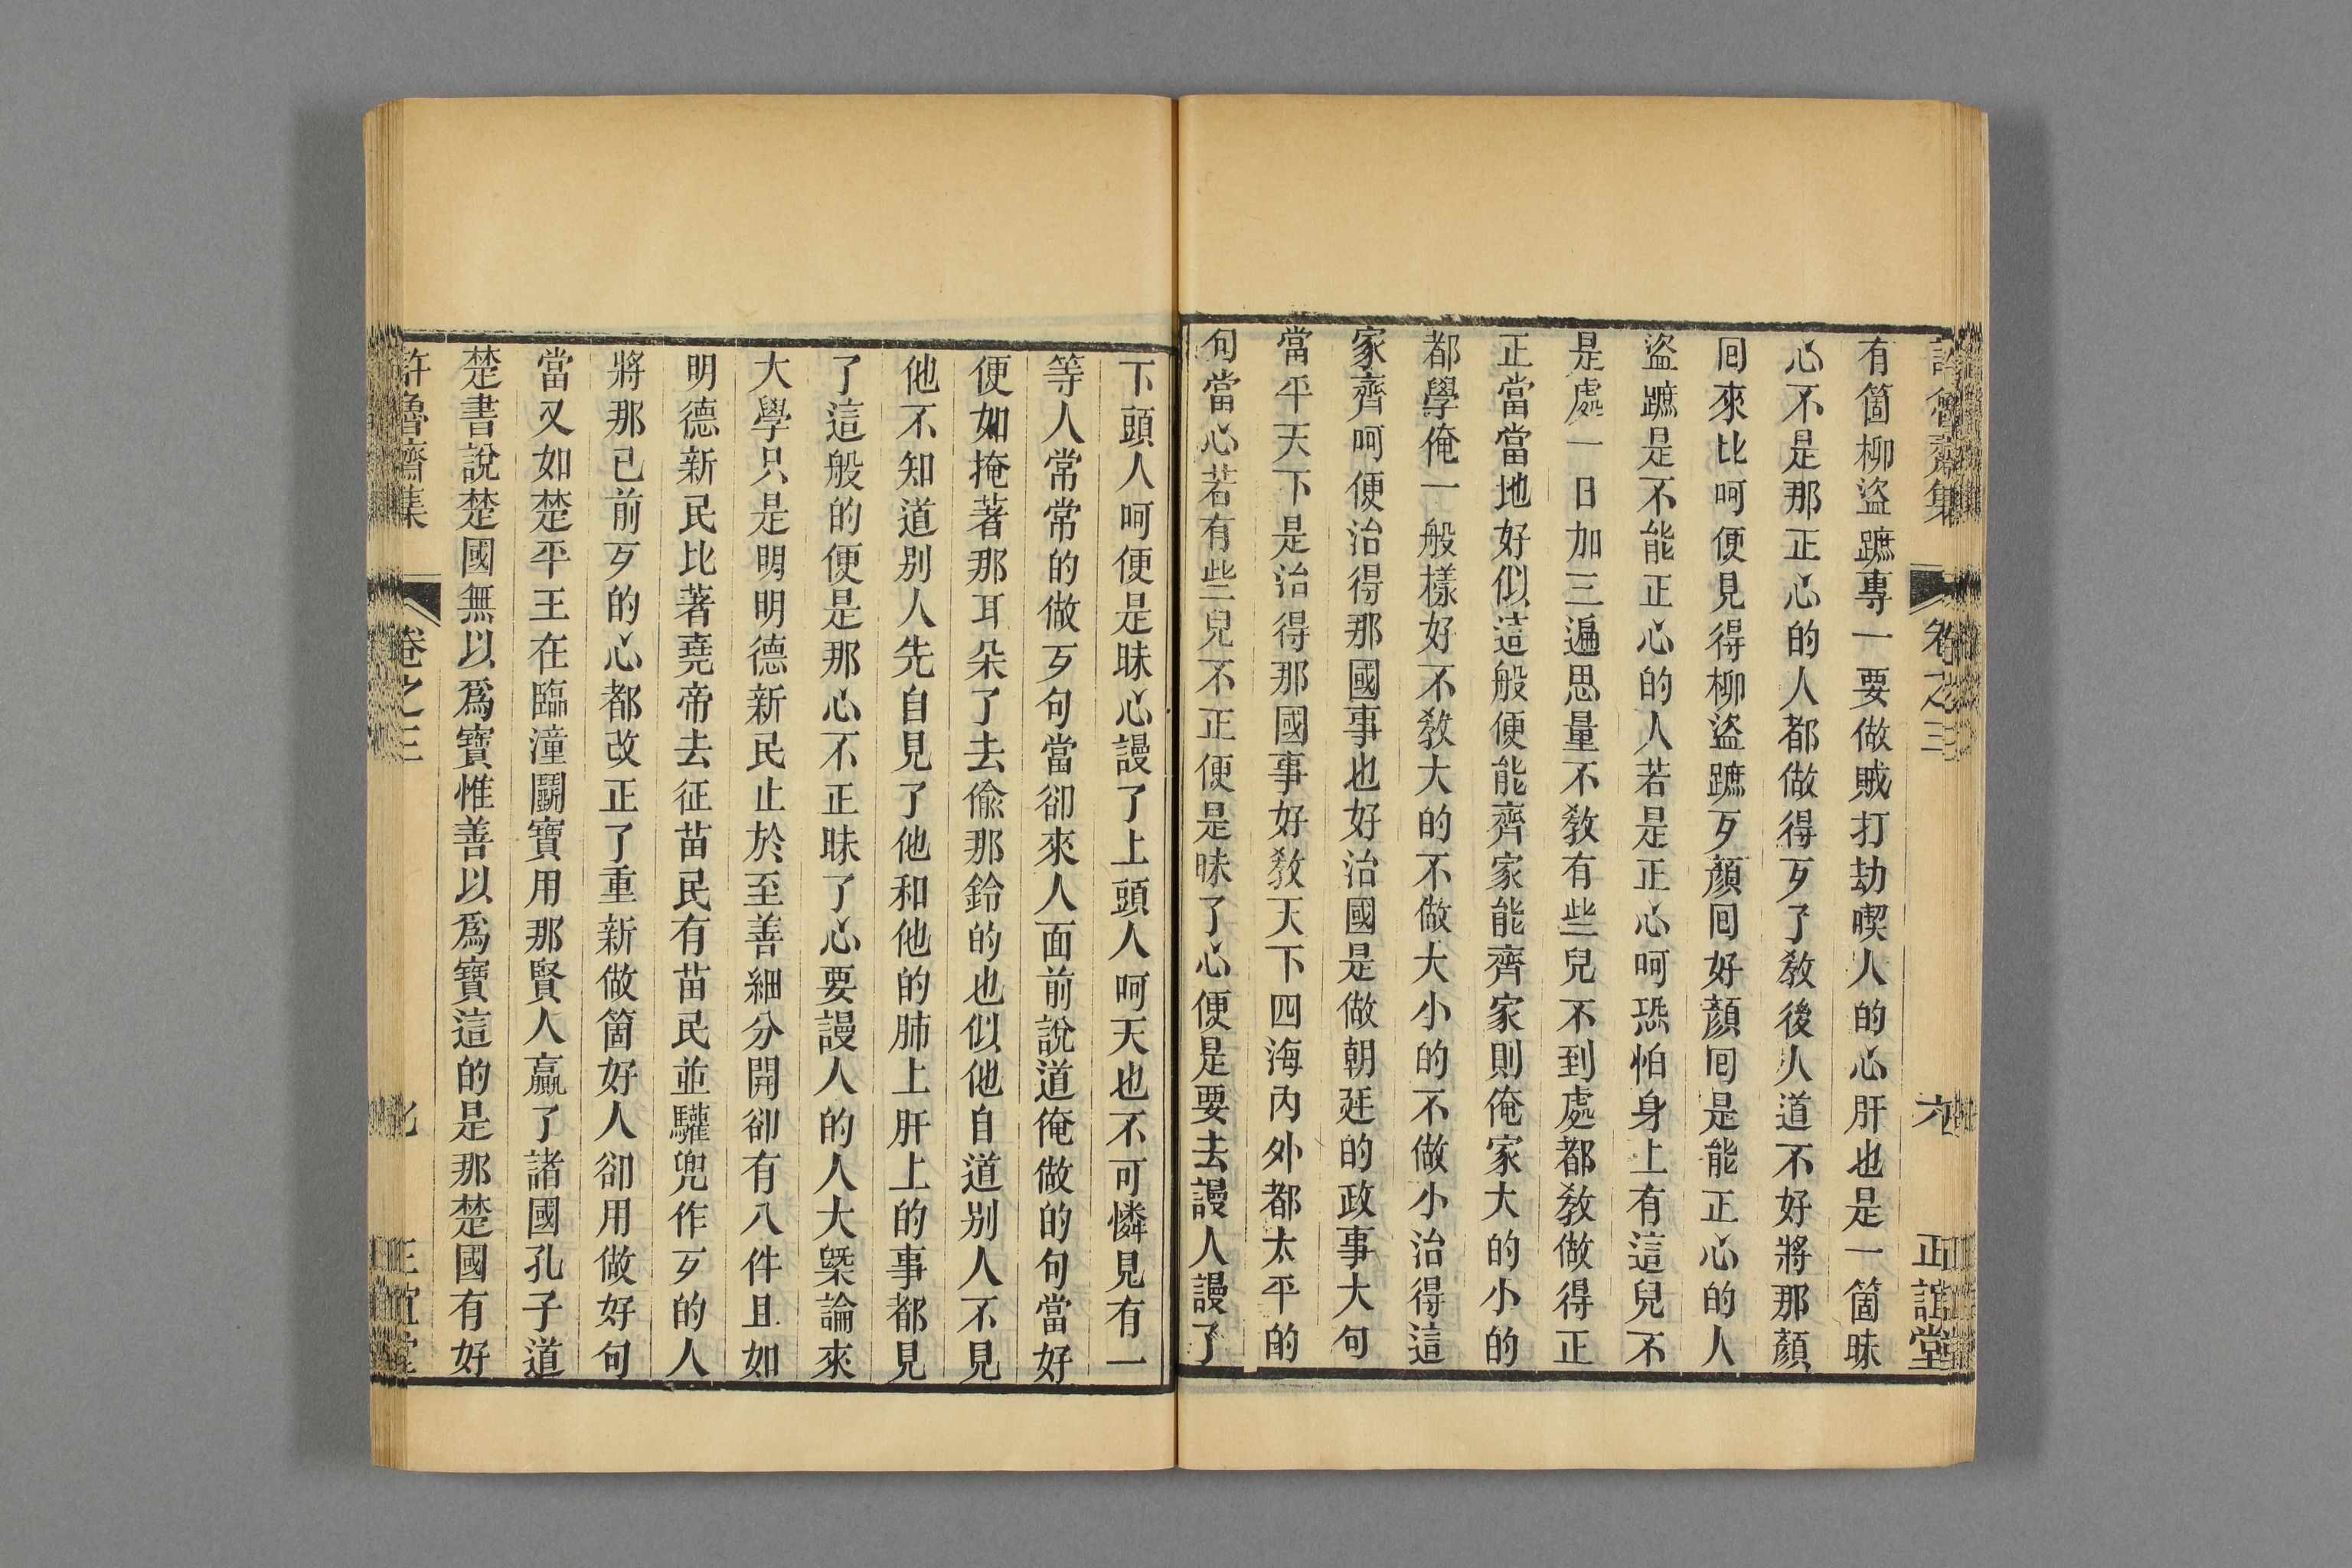 許魯齋集 卷之三 六 正誼堂
有箇柳盜蹠專一要做賊打劫喫人的心肝也是一箇昧
心不是那正心的人都做得歹了敎後人道不好將那顏
囘來比呵便見得柳盜蹠歹顏囘好顏囘是能正心的人
盜蹠是不能正心的人若是正心呵恐怕身上有這兒不
是處一日加三遍思量不敎有些兒不到處都敎做得正
正當當地好似這般便能齊家能齊家則俺家大的小的
都學俺一般樣好不敎大的不做大小的不做小治得這
家齊呵便治得那國事也好治國是做朝廷的政事大句
當平天下是治得那國事好敎天下四海內外都太平的
句當心若有些兒不正便是昧了心便是要去謾人謾了
下頭人呵便是昧心謾了上頭人呵天也不可憐見有一
等人常常的做歹句當卻來人面前說道俺做的句當好
便如掩著那耳朵了去偸那鈴的也似他自道別人不見
他不知道別人先自見了他和他的肺上肝上的事都見
了這般的便是那心不正昧了心要謾人的人大槩論來
大學只是明明德新民止於至善細分開卻有八件且如
明德新民比著堯帝去征苗民有苗民並驩兜作歹的人
將那已前歹的心都改正了重新做箇好人卻用做好句
當又如楚平王在臨潼鬭寶用那賢人贏了諸國孔子道
楚書說楚國無以爲寶惟善以爲寶這的是那楚國有好
許魯齋集 卷之三 正誼堂